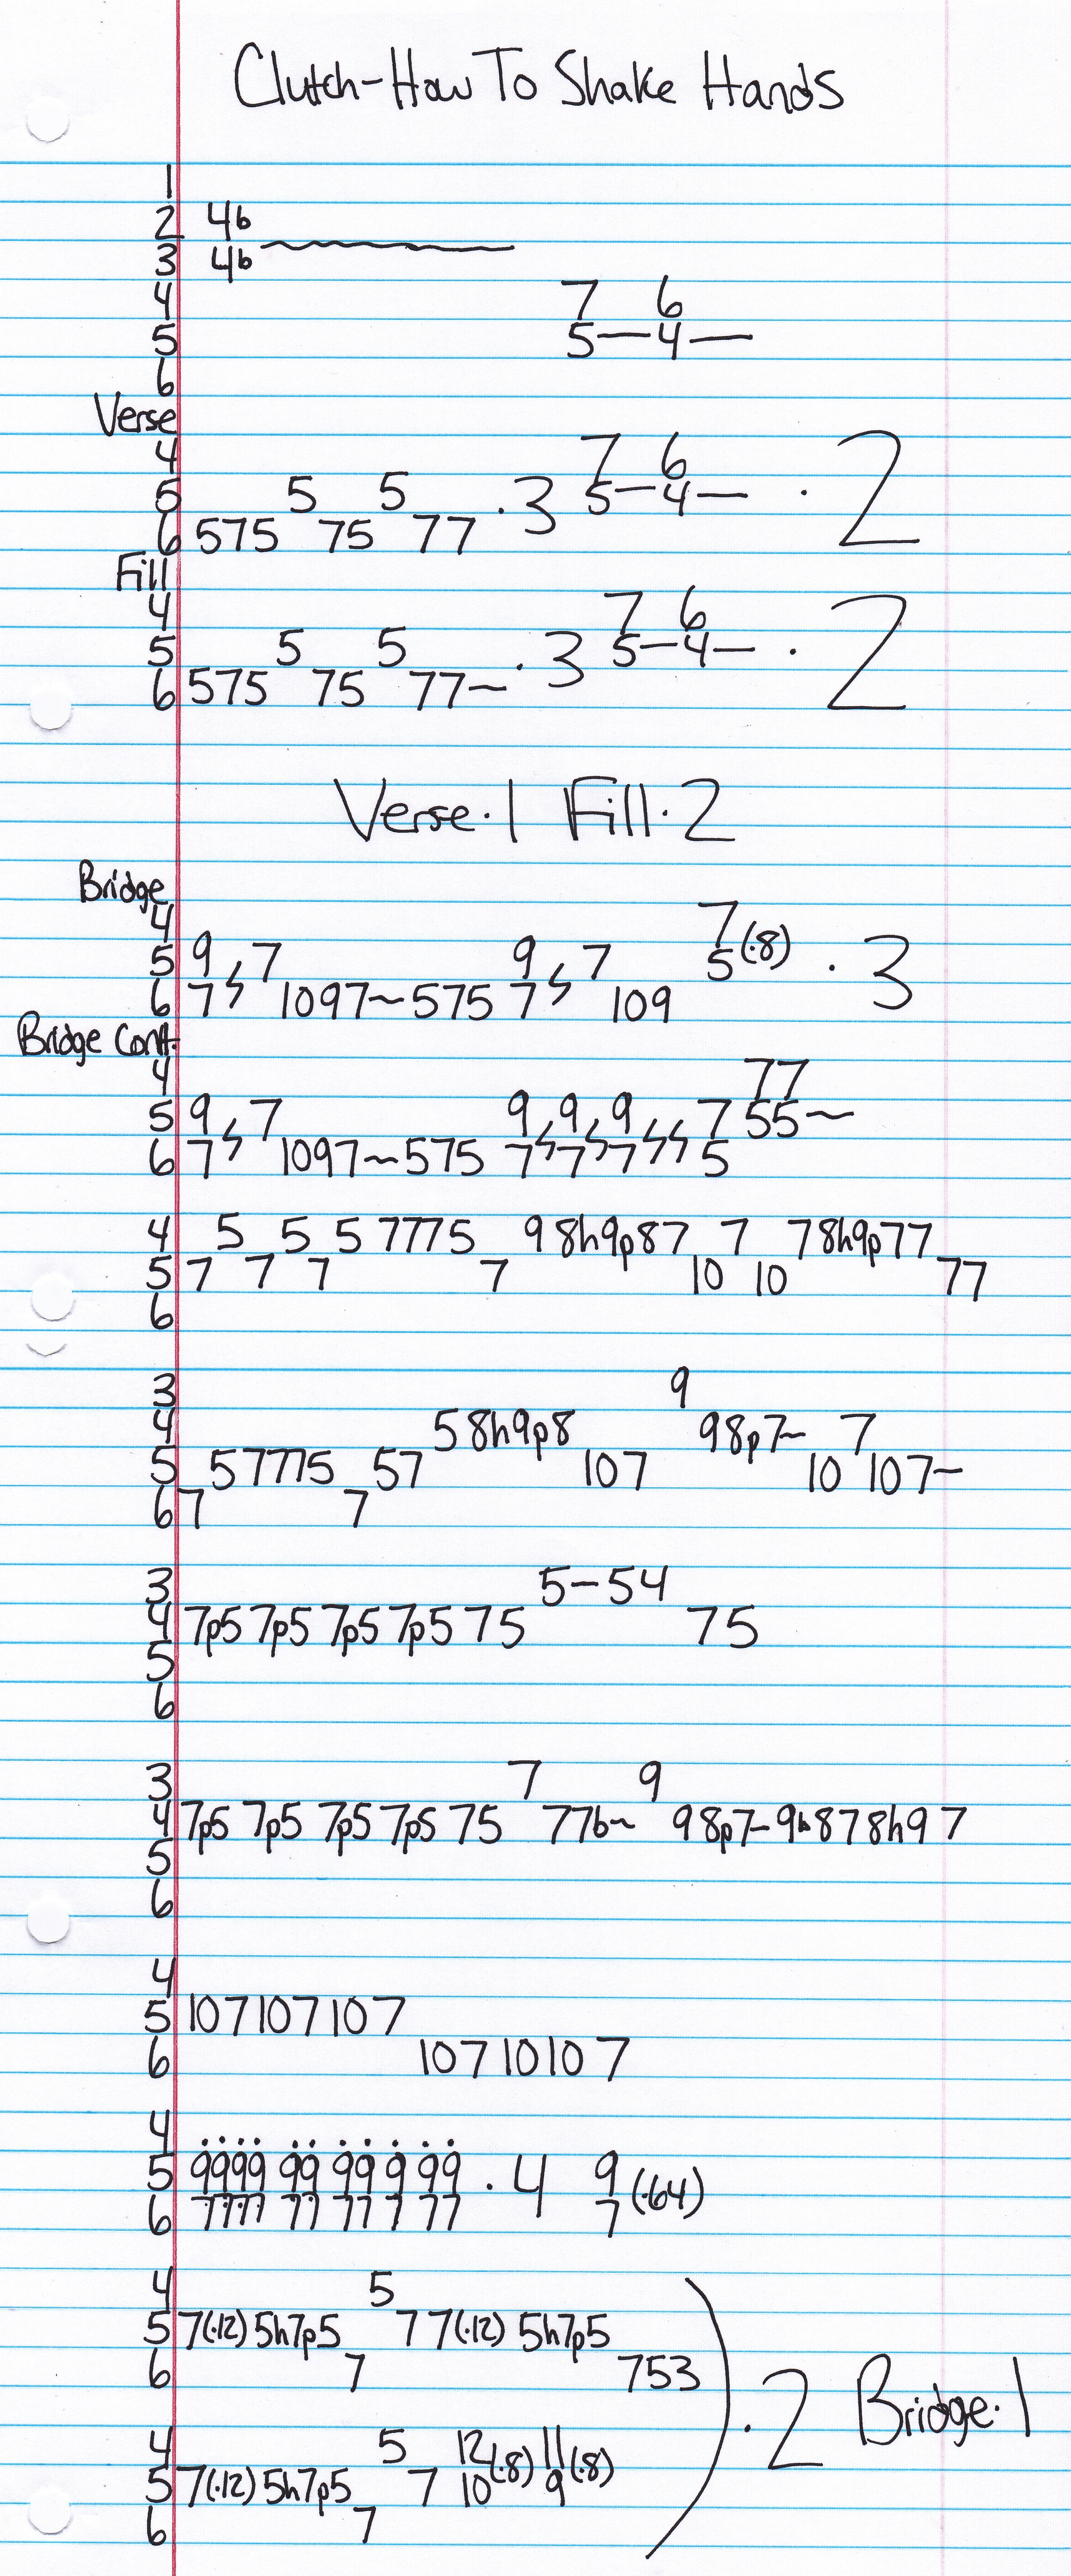 Clutch-How To Shake Hands
1
2 4b
3 4b
4 7 6
5 5—4—
6
Verse
4 7 6
5 5 5 ·3 5—4— ·2
6 575 75 77
Fill
4 7 6
5 5 5 ·3 5—4— ·2
6 575 75 77~
Verse·1 Fill·2
Bridge
4 7
5 9 7 9 7 5(·8) ·3
6 7 1097~575 7 109
Bridge Cont.
4 77
5 9 7 9 9 9 7 55~
6 7 1097~575 7 7 7 5
4 5 5 5 7775 9 8h9p87 7 78h9p77
5 7 7 7 7 10 10 77
6
3 9
4 5 8h9p8 98p7~ 7
5 57775 57 107 10 107~
6 7 7
3 5-54
4 7p5 7p5 7p5 7p5 75 75
5
6
3 7 9
4 7p5 7p5 7p5 7p5 75 77b~ 98p7-9b878h97
5
6
4
5 107107107
6 107 1010 7
4
5 9999 99 99 9 99 ·4 9 (·64)
6 7777 77 77 7 77 7
4 5
5 7(·12) 5h7p5 7 7(·12) 5h7p5
6 7 753
·2 Bridge·1
4 5 12(·8) 11(·8)
5 7(·12) 5h7p5 7 10 9
6 7